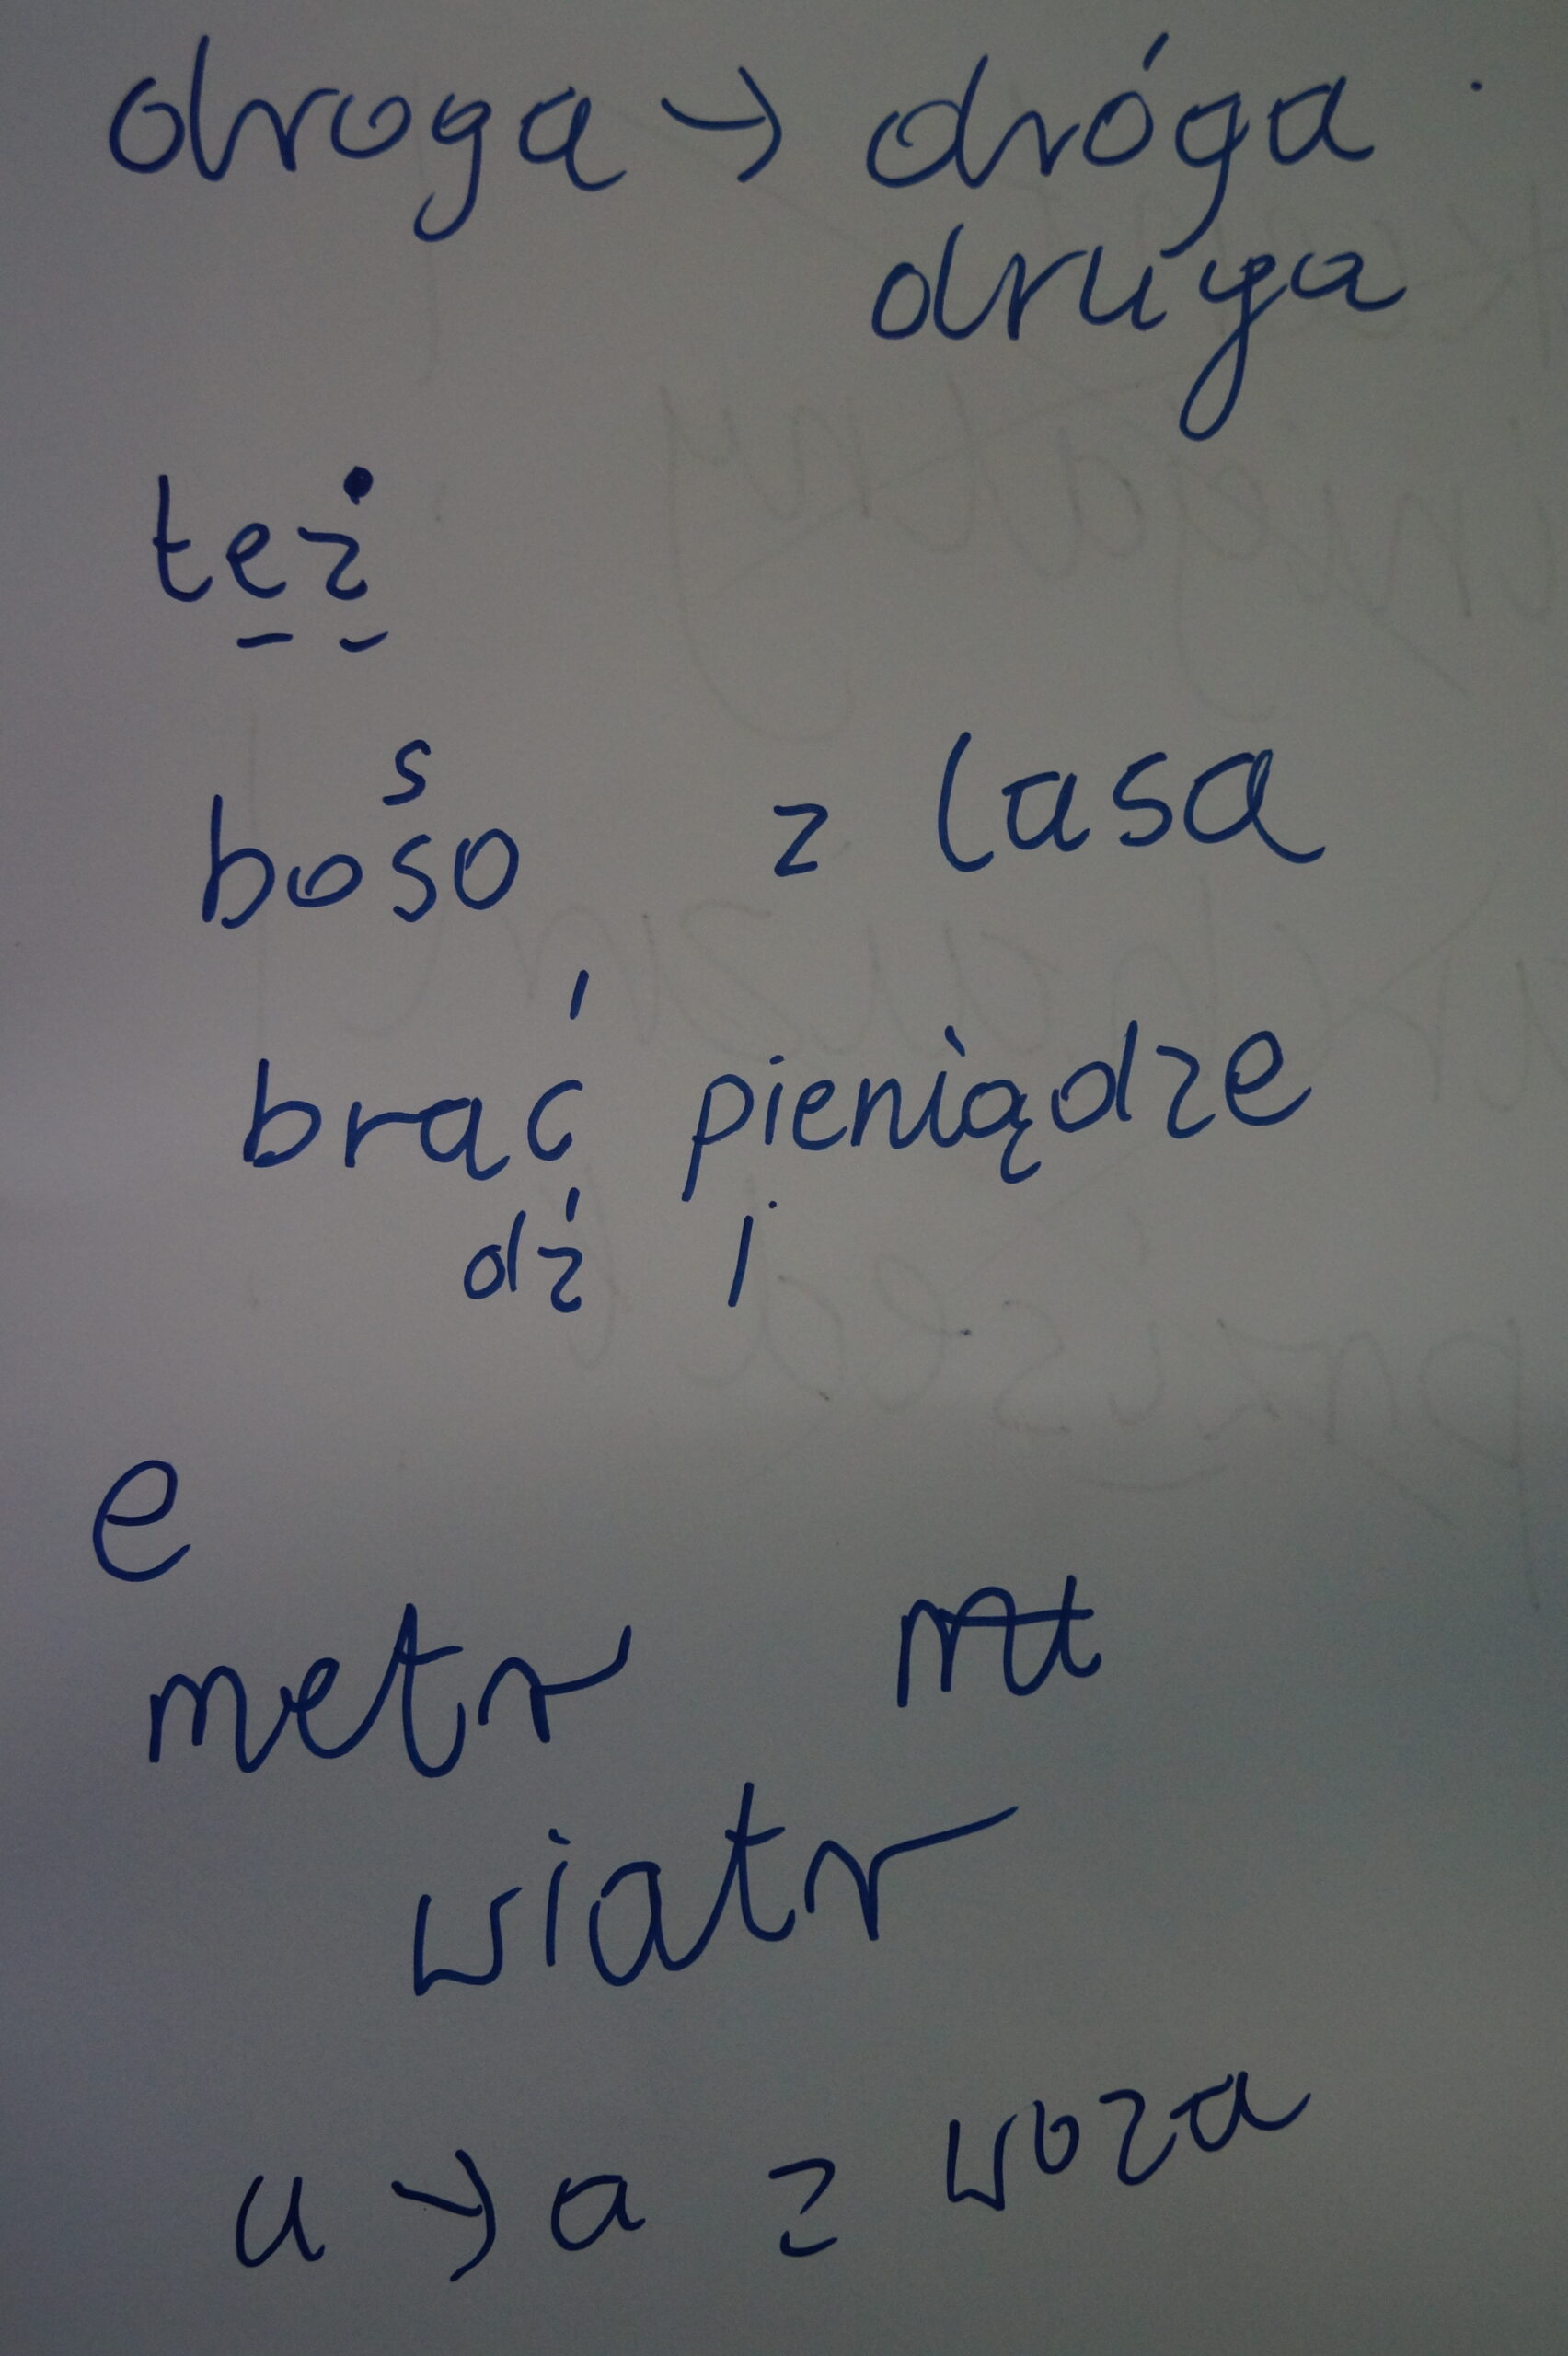 droga → dróga
druga
też
s
boso z lasa
brać pieniądze
dź i
e
metr
wiatr
u → a z woza